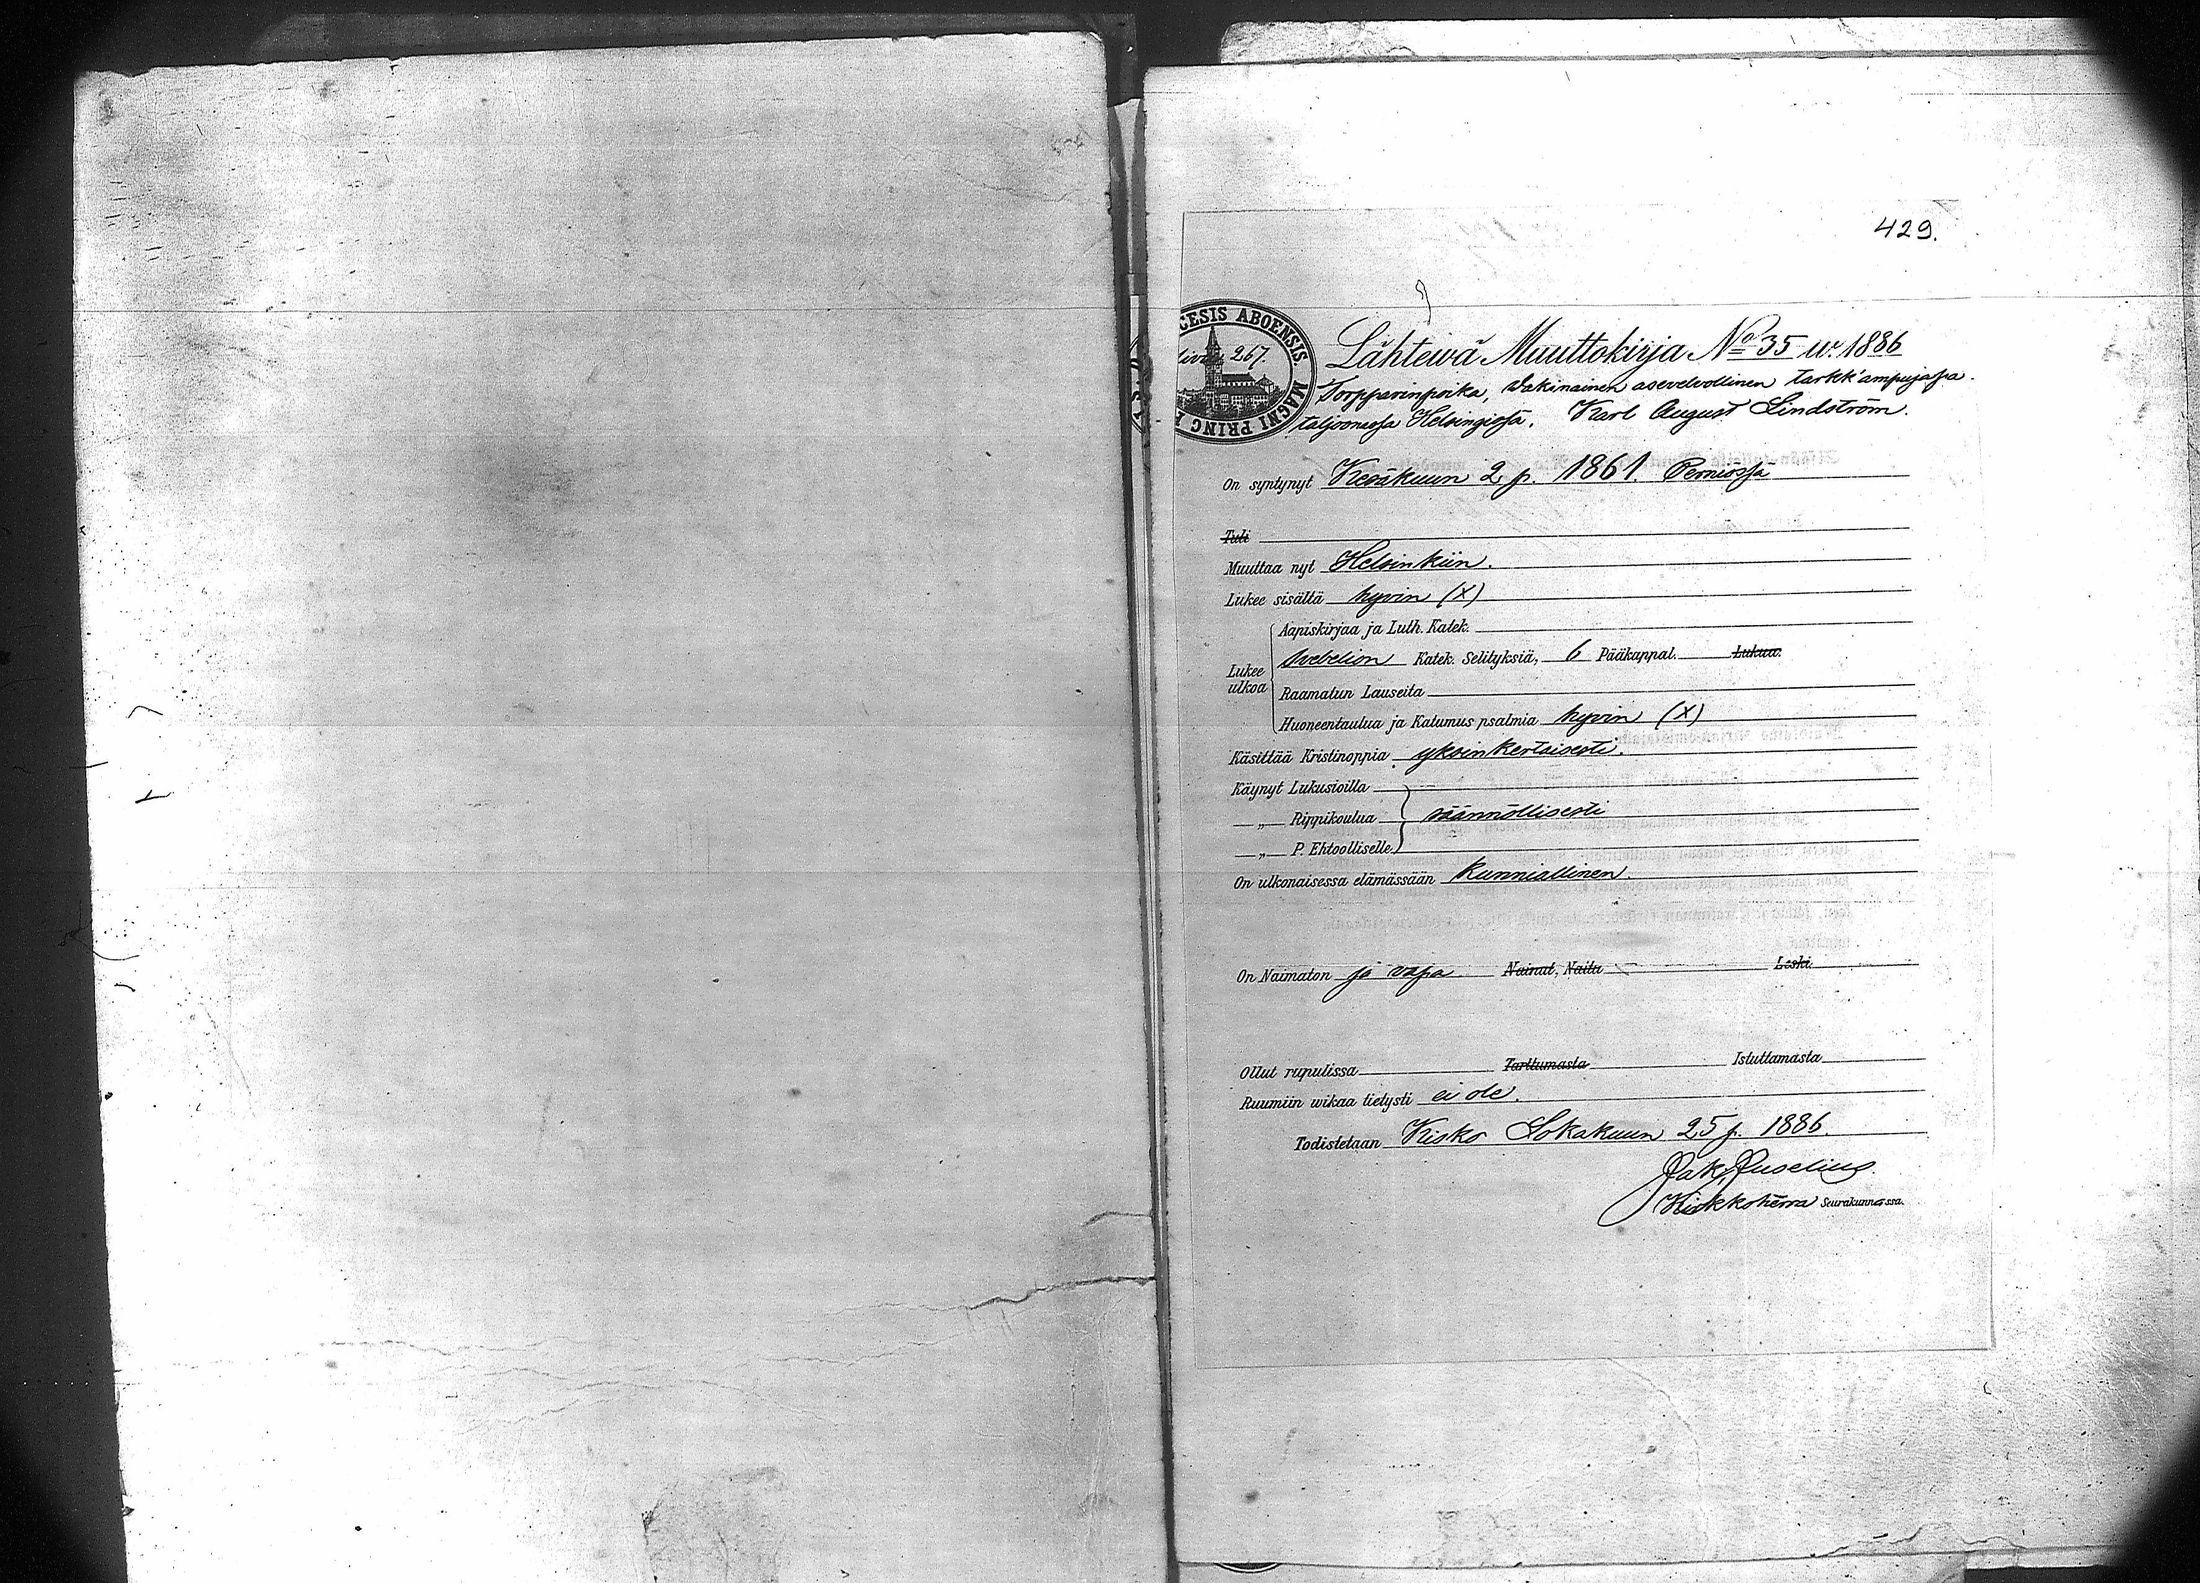 429.
CESIS ABOENSIS. MAGNI PRINC
267.
Lähtewä Muuttokirja No 35 w. 1886
Torpparinpoika, Vakinainen asevelvollinen tarkk'ampujapa-
taljoonassa Helsingissä. Karl August Lindström.
On syntynyt Kesäkuun 2 p. 1861. Perniössä
Tuli
Muuttaa nyt Helsinkiin.
Lukee sisältä hyvin (X)
Aapiskirjaa ja Luth. Katek.
Svebelion Katek. Selityksiä, 6 Pääkappal. Lukua.
Lukee
ulkoa
Raamatun Lauseita
Huoneentaulua ja Katumus psalmia hyvin (X)
Käsittää Kristinoppia yksinkertaisesti.
Käynyt Lukusioilla
„ Rippikoulua säännöllisesti
„ P. Ehtoolliselle
On ulkonaisessa elämässään kunniallinen.
On Naimaton ja vapa Nainut, Naitu Leski.
Ollut rupulissa Tarttumasta Istuttamasta
Ruumiin wikaa tietysti ei ole.
Todistetaan Kisko Lokakuun 25 p. 1886.
Kirkkoherra Seurakunnassa.